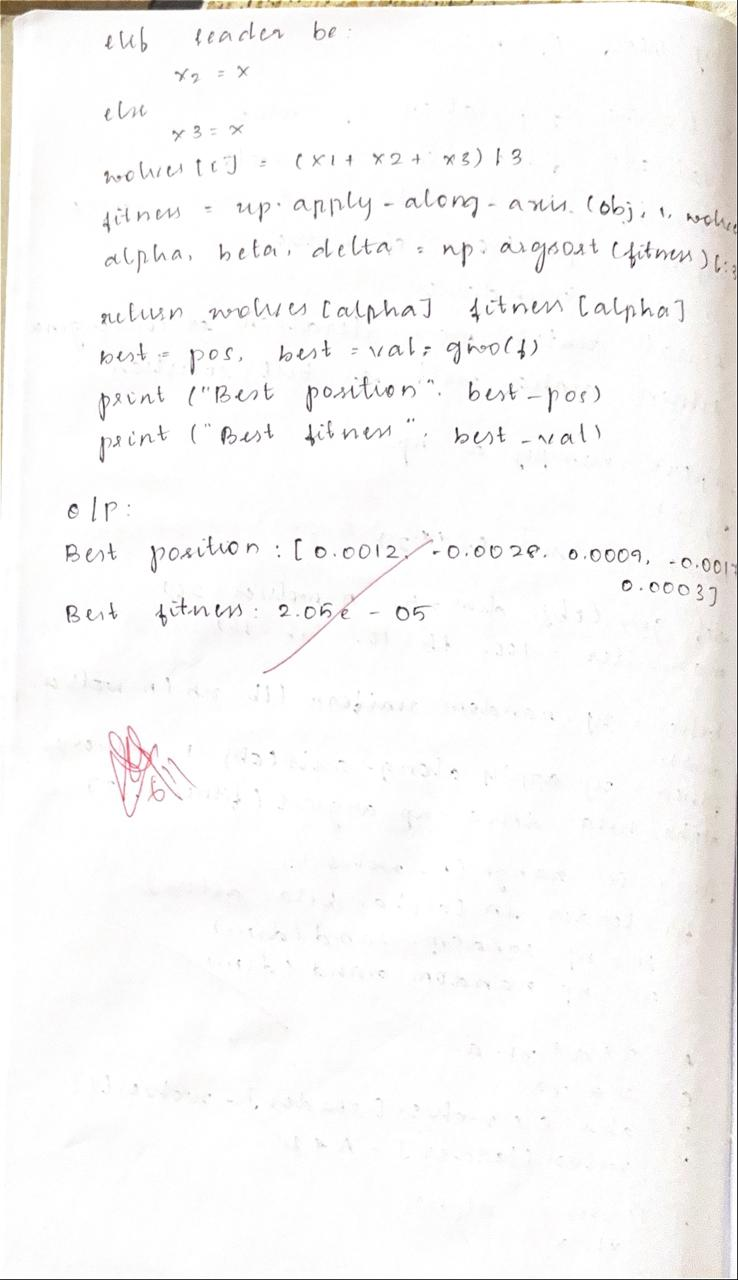 elif leader be:
x2 = x
else
x3 = x
wolves [i] = (x1 + x2 + x3) / 3
fitness = np. apply - along - axis. (obj, 1, wolve
alpha, beta, delta = np. argsort (fitness) [:3
return wolves [alpha] fitness [alpha]
best = pos, best = val = gwo(f)
print ("Best position". best-pos)
print ("Best fitness", best -val)
o/p:
Best position : [0.0012, -0.0028. 0.0009, -0.0017
0.0003]
Best fitness: 2.05e - 05
6/11